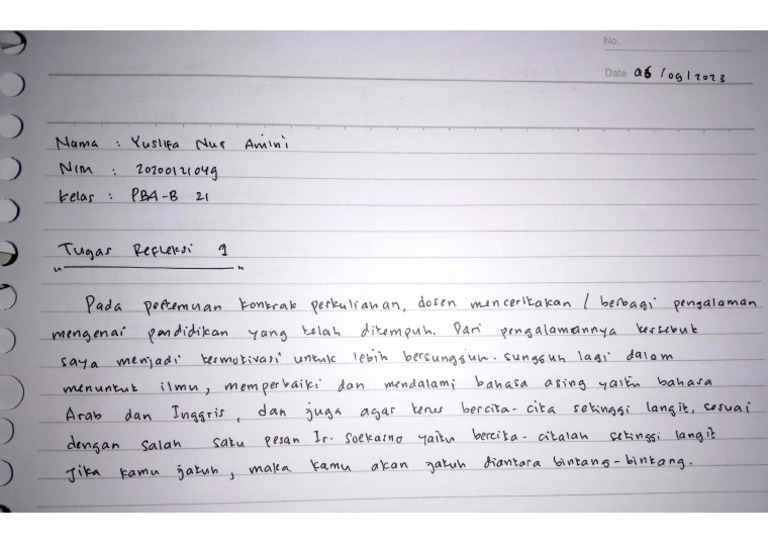 No.
Date 06/09/2023
Nama : Yuslifa Nur Amini
NIM : 20200121049
Kelas : PBA-B 21
Tugas Refleksi 1
Pada pertemuan kontrak perkuliahan, dosen menceritakan / berbagi pengalaman
mengenai pendidikan yang telah ditempuh. Dari pengalamannya tersebut
saya menjadi termotivasi untuk lebih bersungguh-sungguh lagi dalam
menuntut ilmu, memperbaiki dan mendalami bahasa asing yaitu bahasa
Arab dan Inggris, dan juga agar terus bercita-cita setinggi langit, sesuai
dengan salah satu pesan Ir. Soekarno yaitu bercita-citalah setinggi langit
Jika kamu jatuh, maka kamu akan jatuh diantara bintang-bintang.